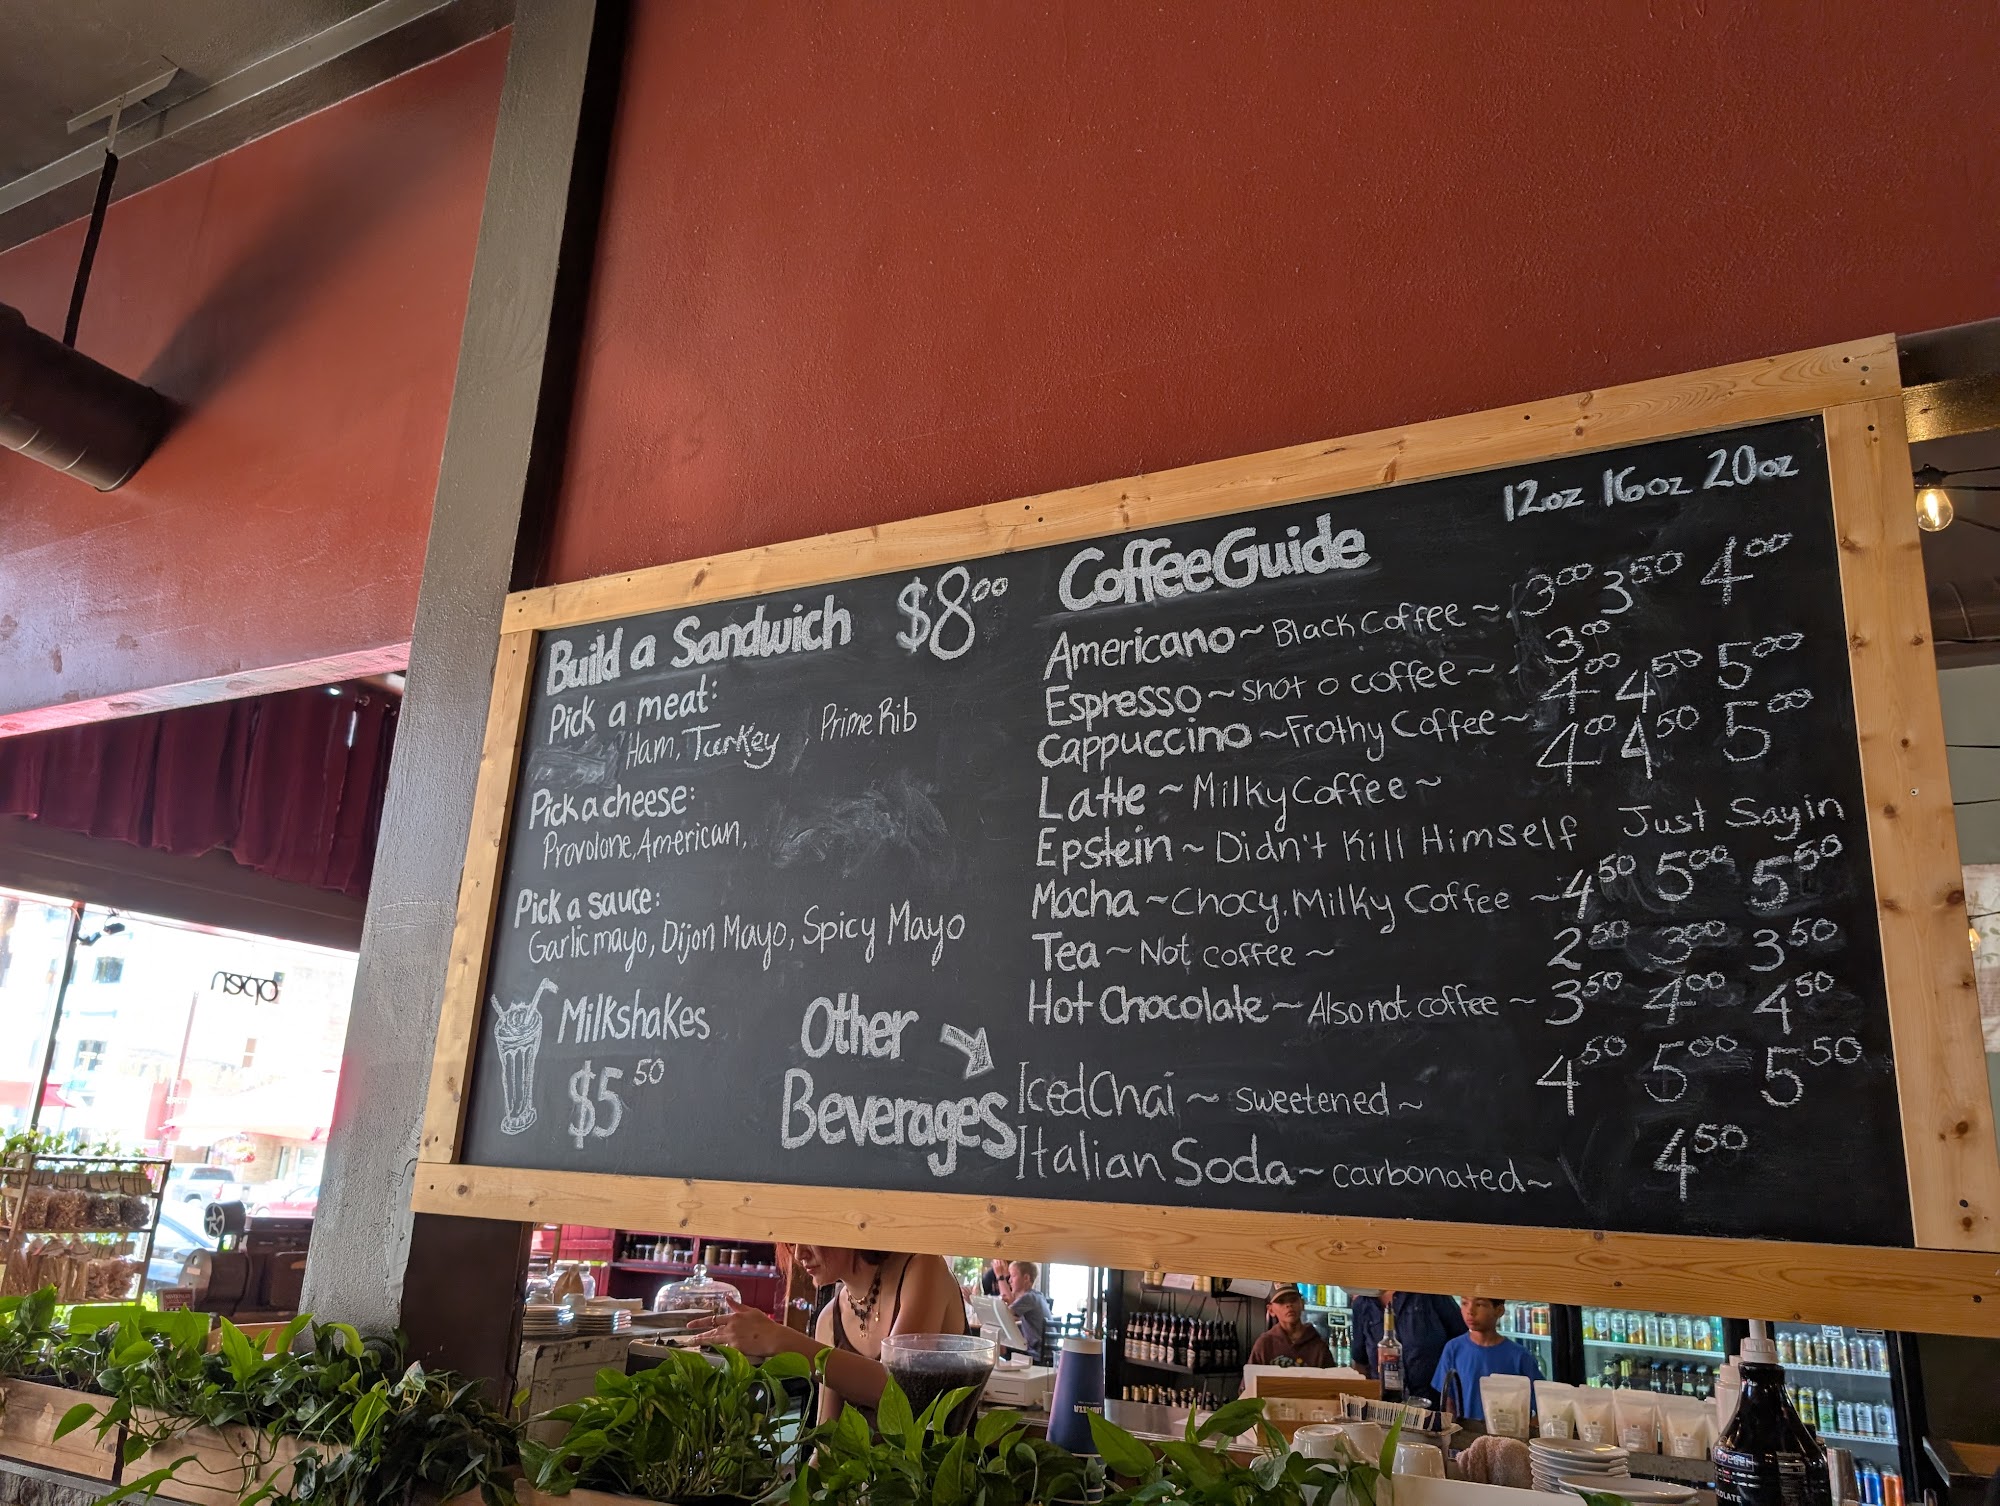 Build a Sandwich $8.00
Pick a meat:
Ham, Turkey, Prime Rib
Pick a cheese:
Provolone, American,
Pick a sauce:
Garlic mayo, Dijon Mayo, Spicy Mayo
Milkshakes
$5.50
Other
Beverages
12oz 16oz 20oz
Coffee Guide
Americano ~ Black Coffee ~ 3.00 3.50 4.00
Espresso ~ shot o coffee ~ 3.00
Cappuccino ~ Frothy Coffee ~ 4.00 4.50 5.00
Latte ~ Milky Coffee ~ 4.00 4.50 5.00
Epstein ~ Didn't Kill Himself Just Sayin
Mocha ~ Chocy, Milky Coffee ~ 4.50 5.00 5.50
Tea ~ Not coffee ~ 2.50 3.00 3.50
Hot Chocolate ~ Also not coffee ~ 3.50 4.00 4.50
Iced Chai ~ sweetened ~ 4.50 5.00 5.50
Italian Soda ~ carbonated ~ 4.50
open